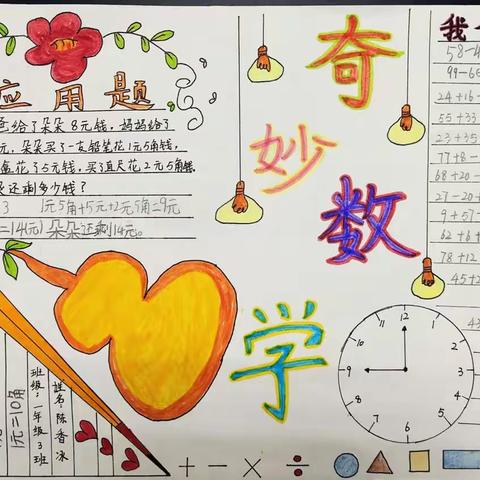 应用题
给了朵朵8元钱,妈妈给了
元,朵朵买了一支铅笔花1元5角钱,
盒花了5元钱,买了直尺花2元5角钱,
还剩多少钱?
3 1元5角+5元+2元5角=9元
=14(元) 朵朵还剩14元。
奇妙数学
我
58-4
99-66
24+16-
55+33
23+35
77+8-
68+20-
27-20+
9+57-
62+6+
78+12
45+2
43
12
1
2
3
4
5
6
7
8
9
10
11
1元=10角
班级:一年级3班
姓名:陈香冰
+ - × ÷